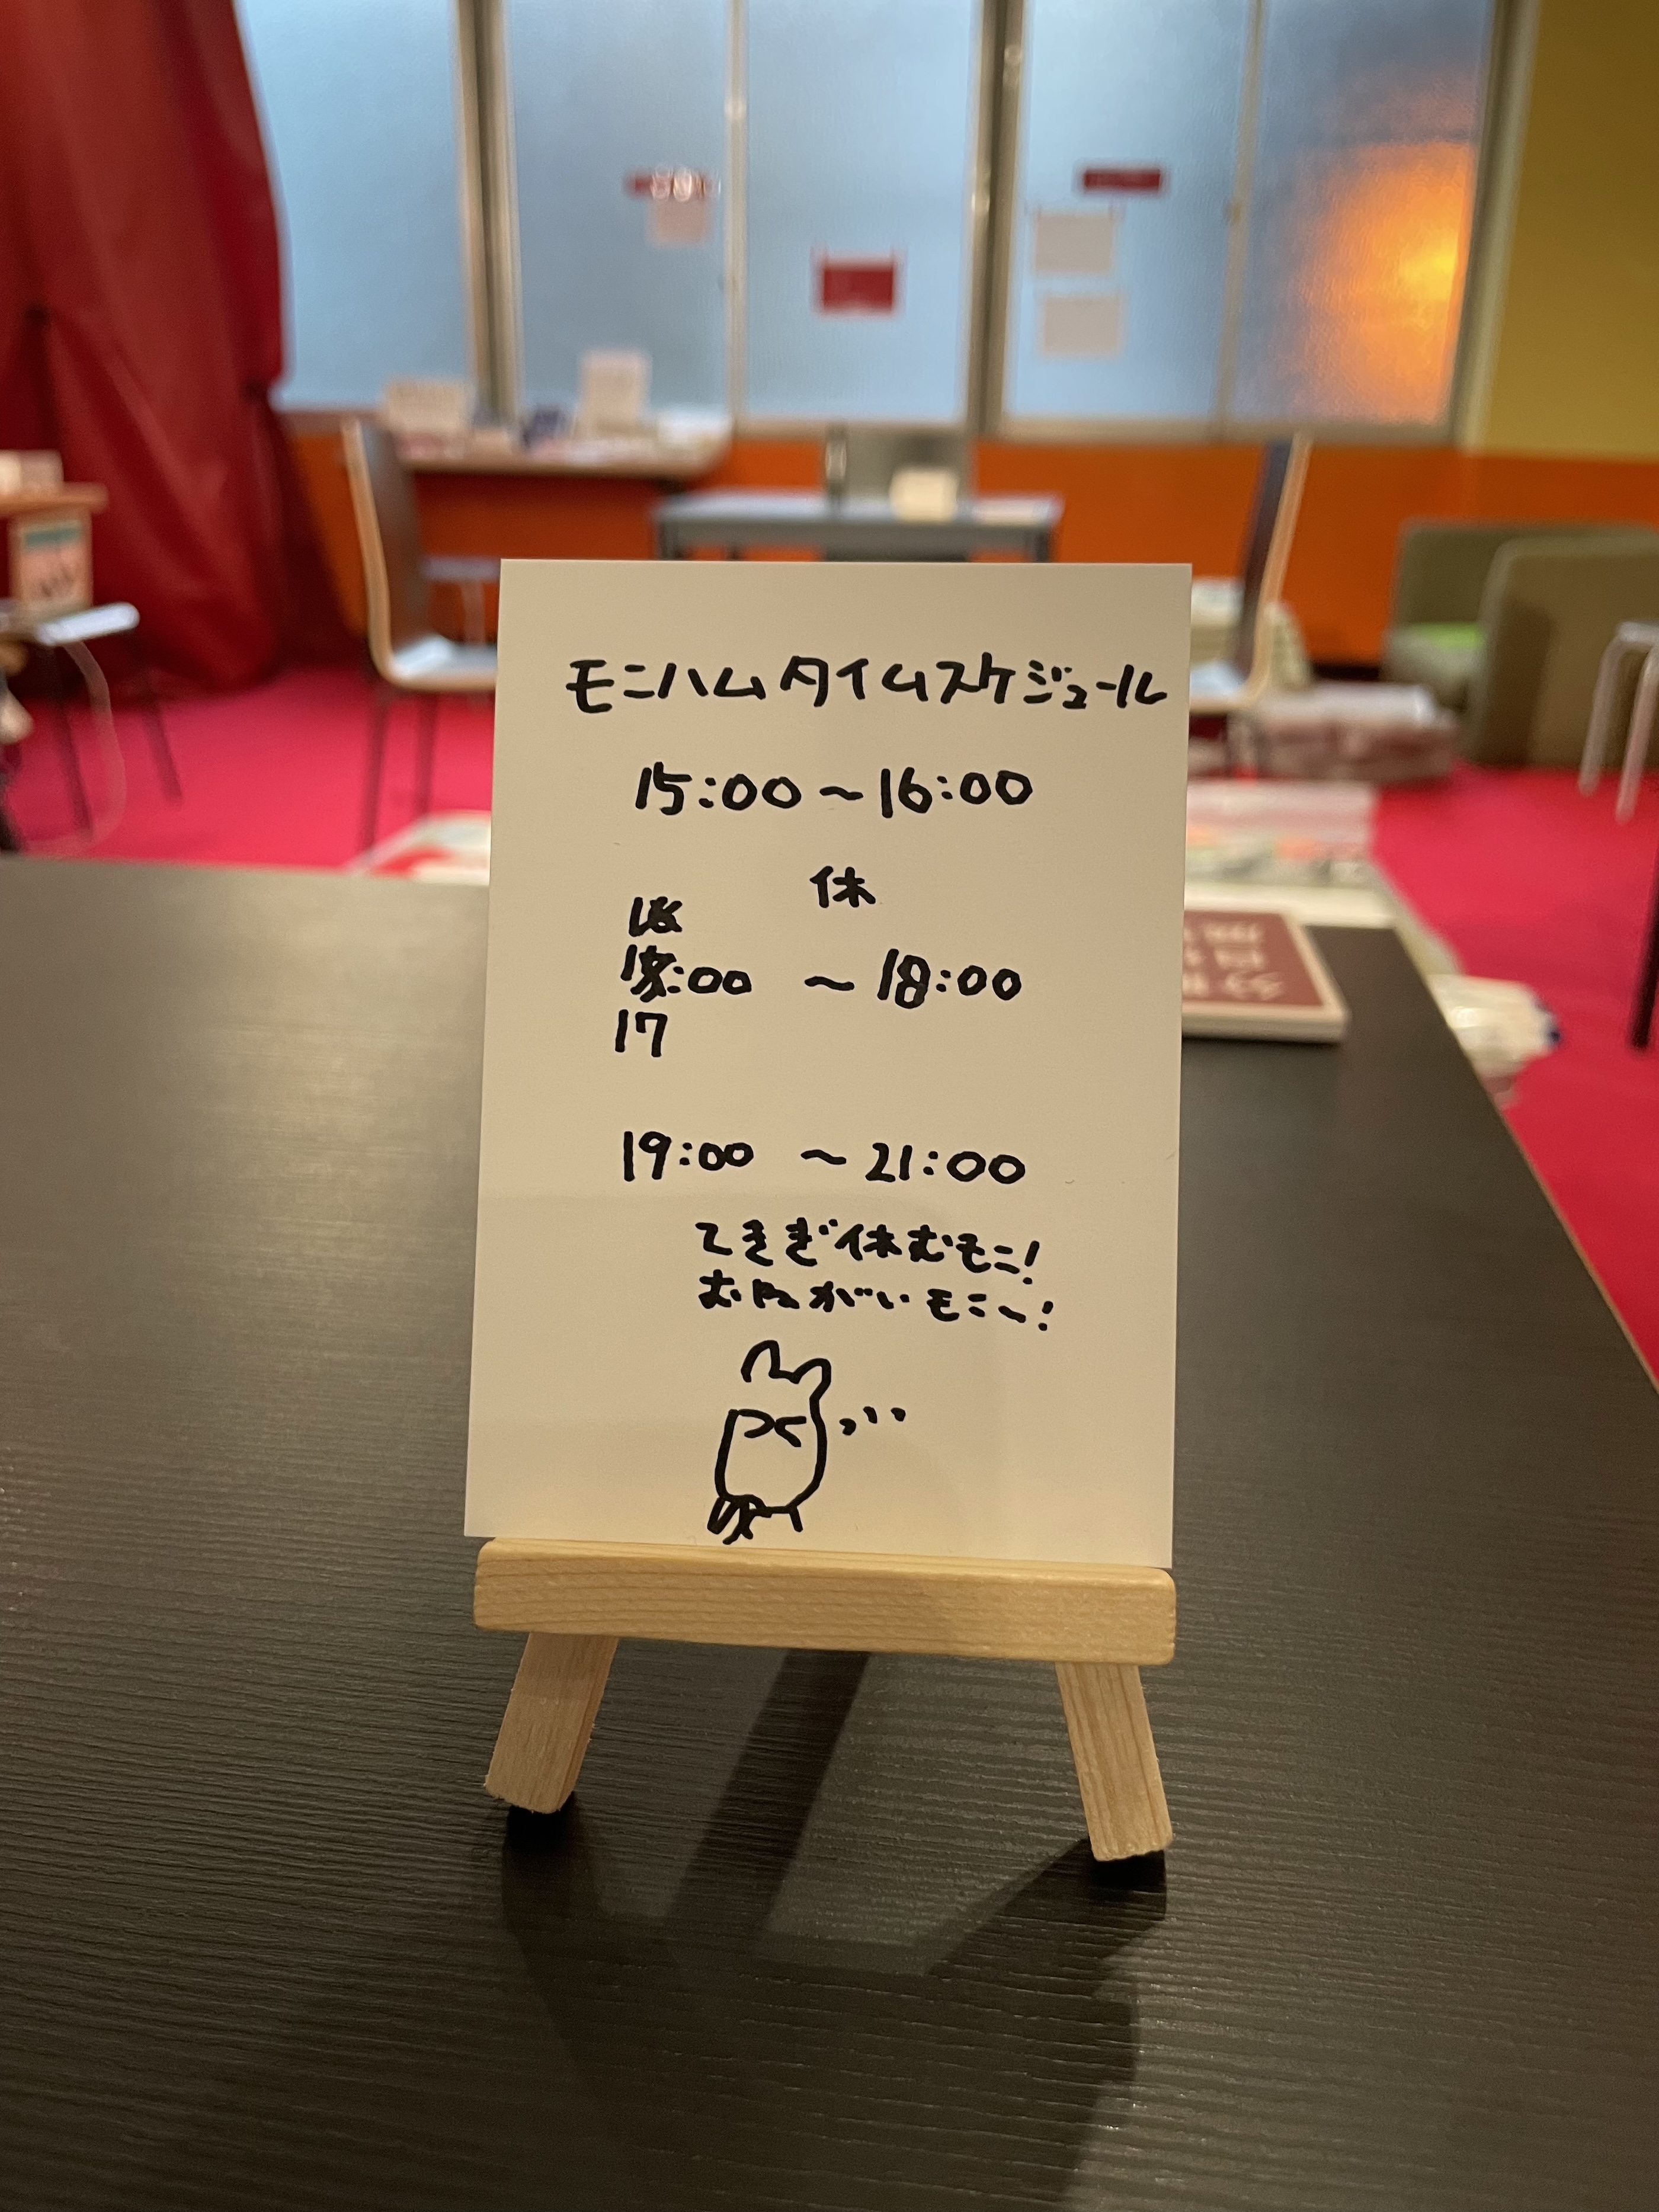 モニハムタイムスケジュール
15:00～16:00
休
:00 ～18:00
17
19:00 ～21:00
てきぎ休むモニ!
おねがいモニ～!